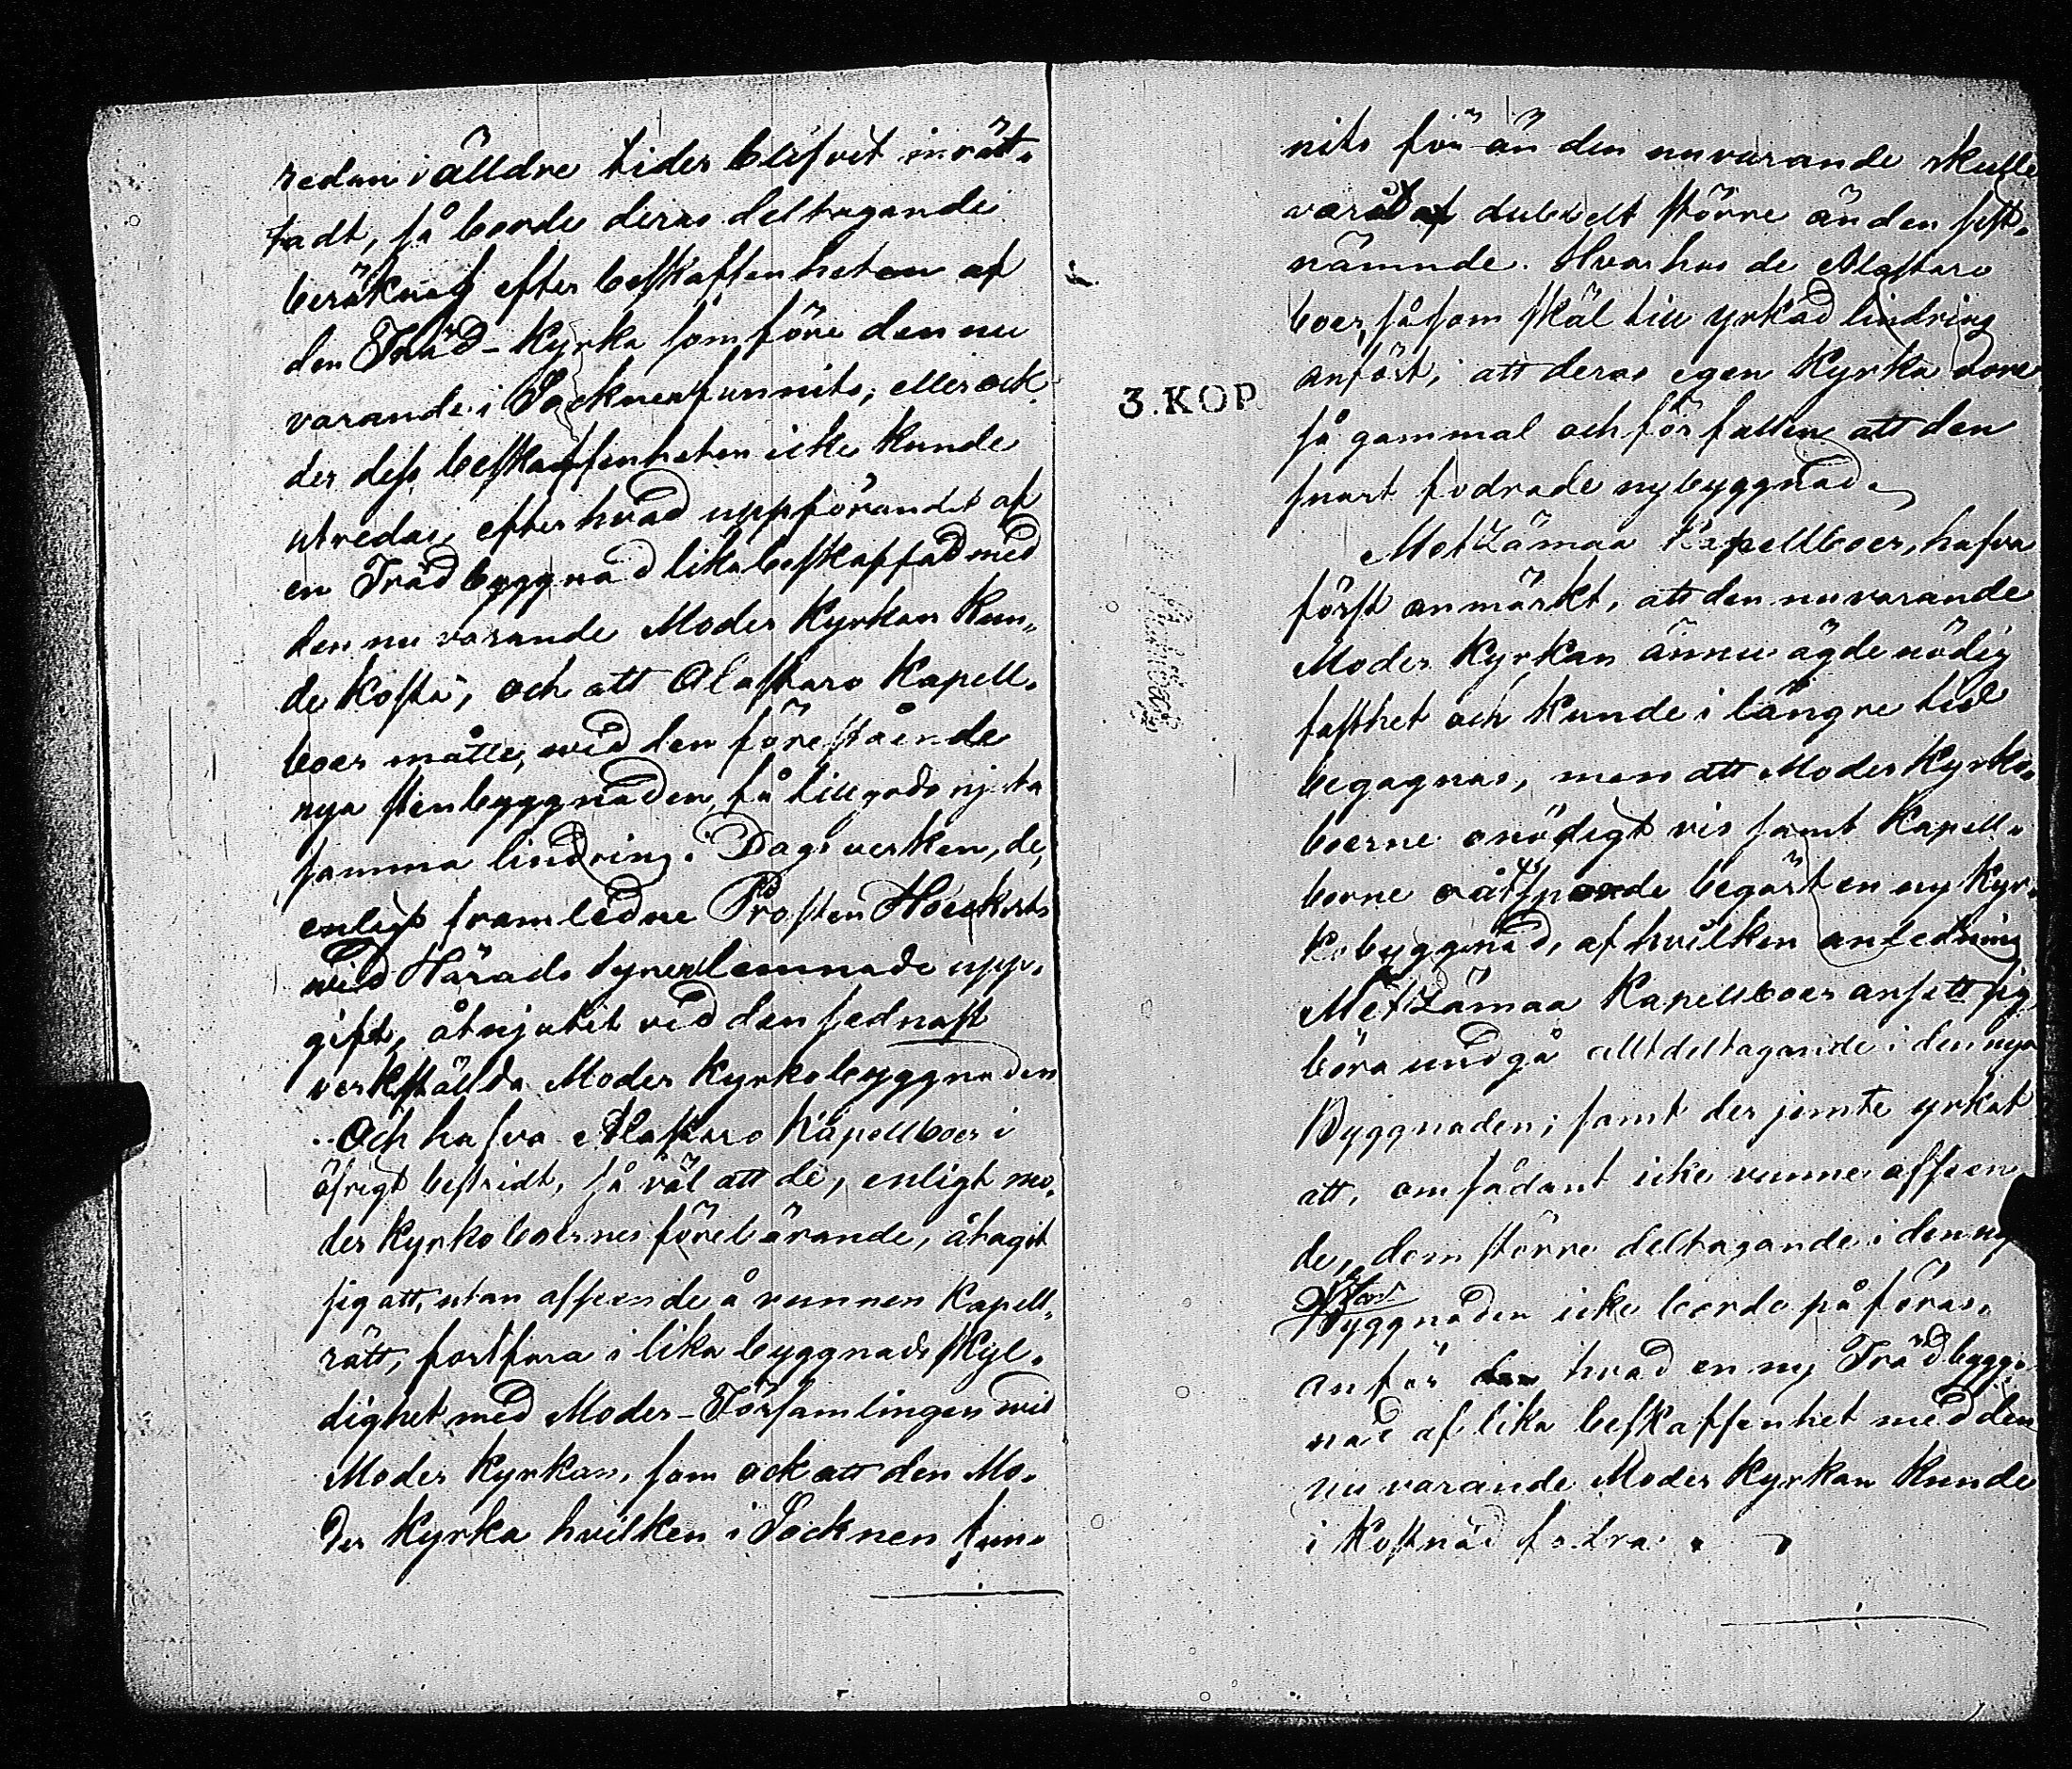 redan i älldre tider blifvit inrät-
tadt, så borde deras deltagande
beräknas efter beskaffenheten af
den Träd-Kyrka som före den nu
varande i Socknen funnits, eller ock
der dess beskaffenheten icke kunde
utredas, efter hvad uppförandet af
en Träd byggnad lika beskaffad med
den nu varande Moder Kyrkan kun-
de kosta, och att Alastaro Kapell-
boer måtte, wid den förestående
nya stenbyggnaden, få tillgodo njuta
samma lindring i Dagsverken, de,
enligt framledne Prosten Höckerts
wid Härads synen lemnade upp-
gift, åtnjutit vid den sednast
verkstälda Moder Kyrko byggnaden
Och hafva Alastaro Kapellboer i
öfrigt bestridt, så väl att de, enligt mo-
der Kyrkoboernes förebärande, åtagit
sig att, utan afseende å vunnen Kapell-
rätt, fortfara i lika byggnads skyl-
dighet med Moder-Församlingen wid
Moder Kyrkan, som ock att den Mo-
der Kyrka hvilken i Socknen fun-
nits för än den nuvarande skulle
varit dubbelt större än den sist-
nämnde. Hvarhos de Alastaro
boer, såsom skäl till yrkad lindring
anfört, att deras egen Kyrka vore
3. KOP
så gammal och förfallen att den
snart fodrade nybyggnad.
Metzämaa Kapellboer, hafva
först anmärkt, att den nuvarande
Moder Kyrkan ännu ägde nödig
fasthet och kunde i längre tid
begagnas, men att Moder Kyrko-
boerne onödigt vis samt Kapell-
borne begärt en ny Kyr-
kobyggnad, af hvilken anledning
Metzämaa Kapellboer ansett sig
böra undgå allt deltagande i den nya
Byggnaden; samt der jemte yrkat
att, om sådant icke vunne afseen-
de, dem större deltagande i den ny
Byggnaden icke borde påföras,
än för hvad en ny Träd bygg-
nad af lika beskaffenhet med den
nu varande Moder Kyrkan kunde
i kostnad fodra.